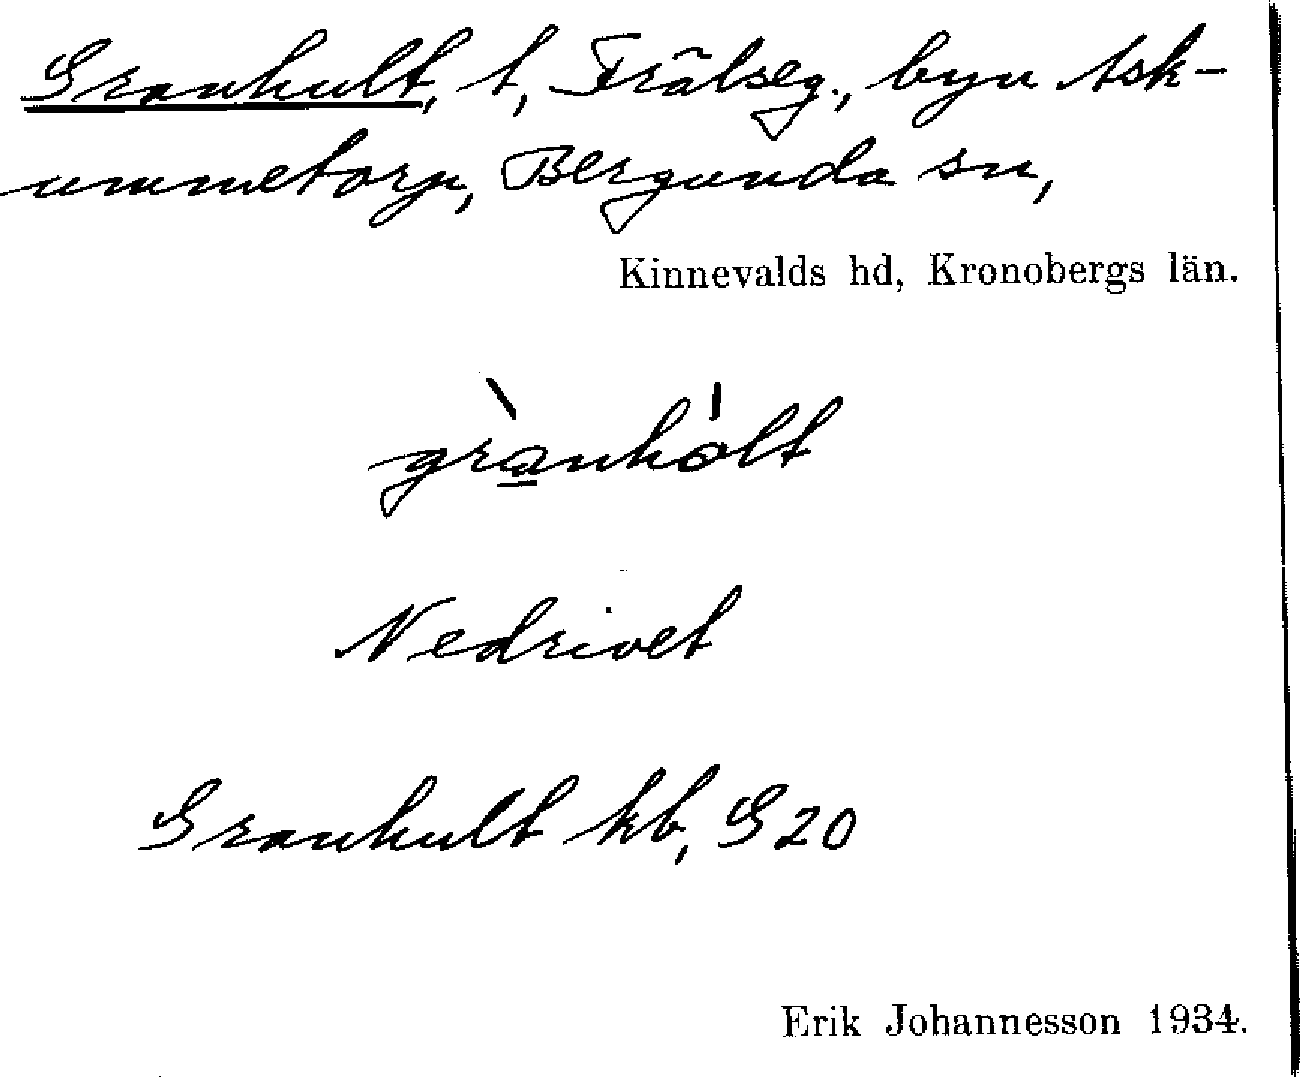 Granhult, t, Frälseg., byn Ask-
ummetorp, Bergunda sn,
Kinnevalds hd, Kronobergs län.
grànhólt
Nedrivet
Granhult kb, G 20
Erik Johannesson 1934.